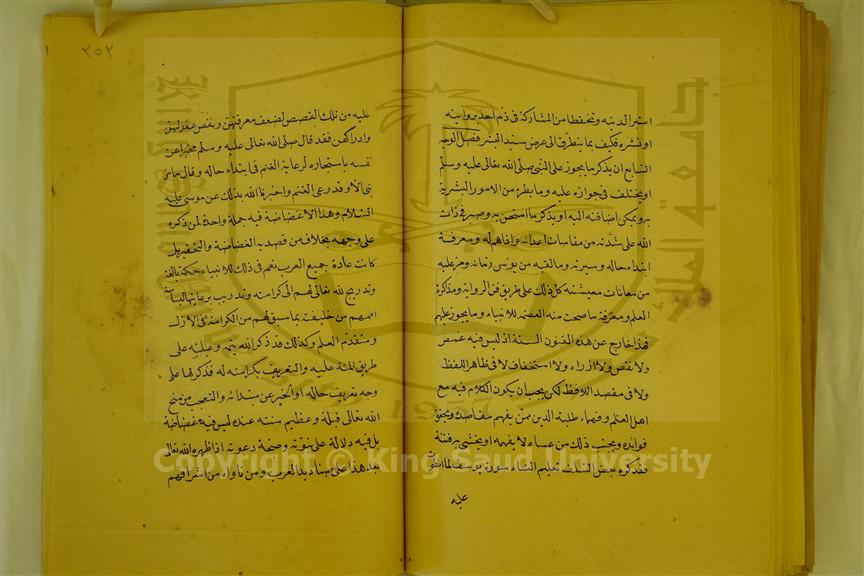 استبرا لدينه وتحفظا من المشاركة في ذم احد برواينه
او نشره فكيف بما يتطرق الى عرض سيد البشر فصل الوجه
السابع ان يذكر ما يجوز على النبي صلى الله تعالى عليه وسلم
او يختلف في جوازه عليه وما يطرا من الامور البشرية
به ويمكن اضافته اليه او يذكر ما امتحن به وصبر في ذات
الله على شدته من مقاسات اعدائه واذاهم له ومعرفة
ابتداء حاله وسيرته وما لقيه من بوس زمانه ومر عليه
من معانات معيشته كل ذلك على طريق فن الرواية ومذاكرة
العلم ومعرفة ما صحت منه العصمة للانبياء وما يجوز عليهم
فهذا خارج عن هذه الفنون الستة اذ ليس فيه غمص
ولا نقص ولا ازراء ولا استخفاف لا في ظاهر اللفظ
ولا في مقصد اللافظ لكن يجب ان يكون الكلام فيه مع
اهل العلم وفهماء طلبة الدين ممن يفهم مقاصده ويحقق
فوايده ويجنب ذلك من عساه لا يفهمه او يخشى به فتنة
فقد كره بعض السلف تعليم النساء سورة يوسف لما انطوت
عليه
٢٥٢
عليه من تلك القصص لضعف معرفتهن ونقص عقولهن
وادراكهن فقد قال صلى الله تعالى عليه وسلم مخبرا عن
نفسه باستيجاره لرعاية الغنم في ابتداء حاله وقال ما من
نبي الا وقد رعى الغنم واخبرنا الله بذلك عن موسى عليه
السلام وهذا لا غضاضة فيه جملة واحدة لمن ذكره
على وجهه بخلاف من قصد به الغضاضة والتحقير بل
كانت عادة جميع العرب نعم في ذلك للانبياء حكمة بالغة
وتدريج لله تعالى لهم الى كرامته وتدريب برعايتها لسياسة
اممهم من خليقته بما سبق لهم من الكرامة في الازل
ومتقدم العلم وكذلك قد ذكر الله يتمه وعيلته على
طريق المنة عليه والتعريف بكرامته له فذكر لها على
وجه تعريف حاله او الخبر عن مبتدائه والتعجب من منح
الله تعالى قبله وعظيم منته عنده ليس فيه غضاضة
بل فيه دلالة على نبوته وصحة دعوته اذ اظهره الله تعالى
بعد هذا على صناديد العرب ومن ناواه من اشرافهم
جامعة الملك
1957
Copyright © King Saud University